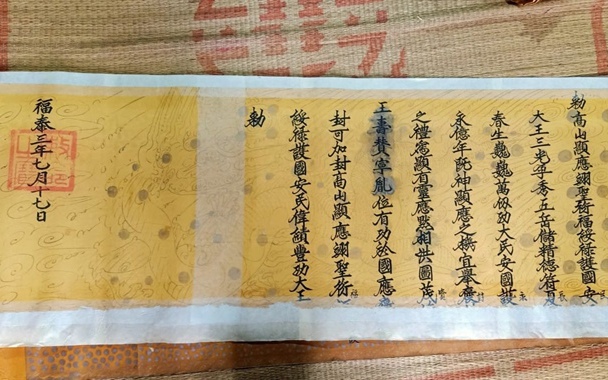 勅高山顯應翊聖衍福綏祿護國安
大王三光孕秀五岳儲精德符
春生巍巍萬仞功大民安國護
永億年既神顯應之機宜舉褒
之禮憲顯有靈應默相洪圖茂
王壽贊寧胤位有功於國應
封可加封高山顯應翊聖衍
綏祿護國安民偉績豐功大王
勅
福泰三年七月十七日